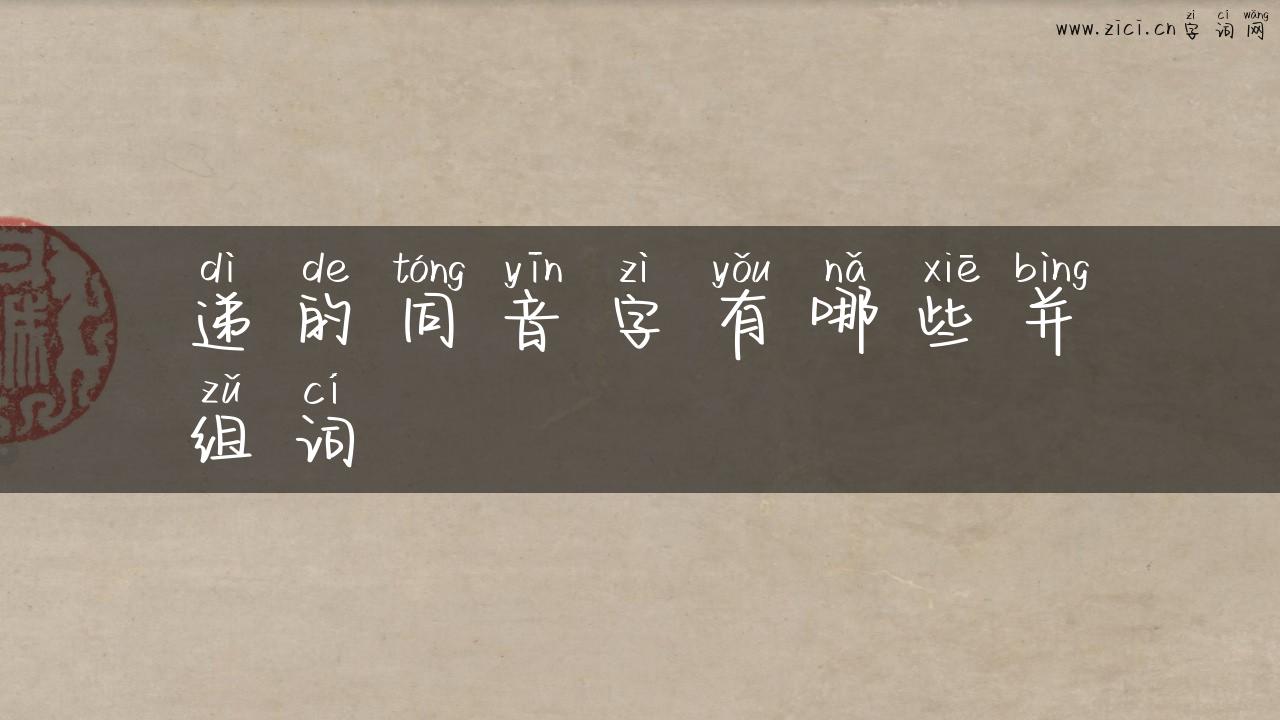 zì cí wǎng
www.zici.cn 字词网
dì de tóng yīn zì yǒu nǎ xiē bìng
递的同音字有哪些并
zǔ cí
组词